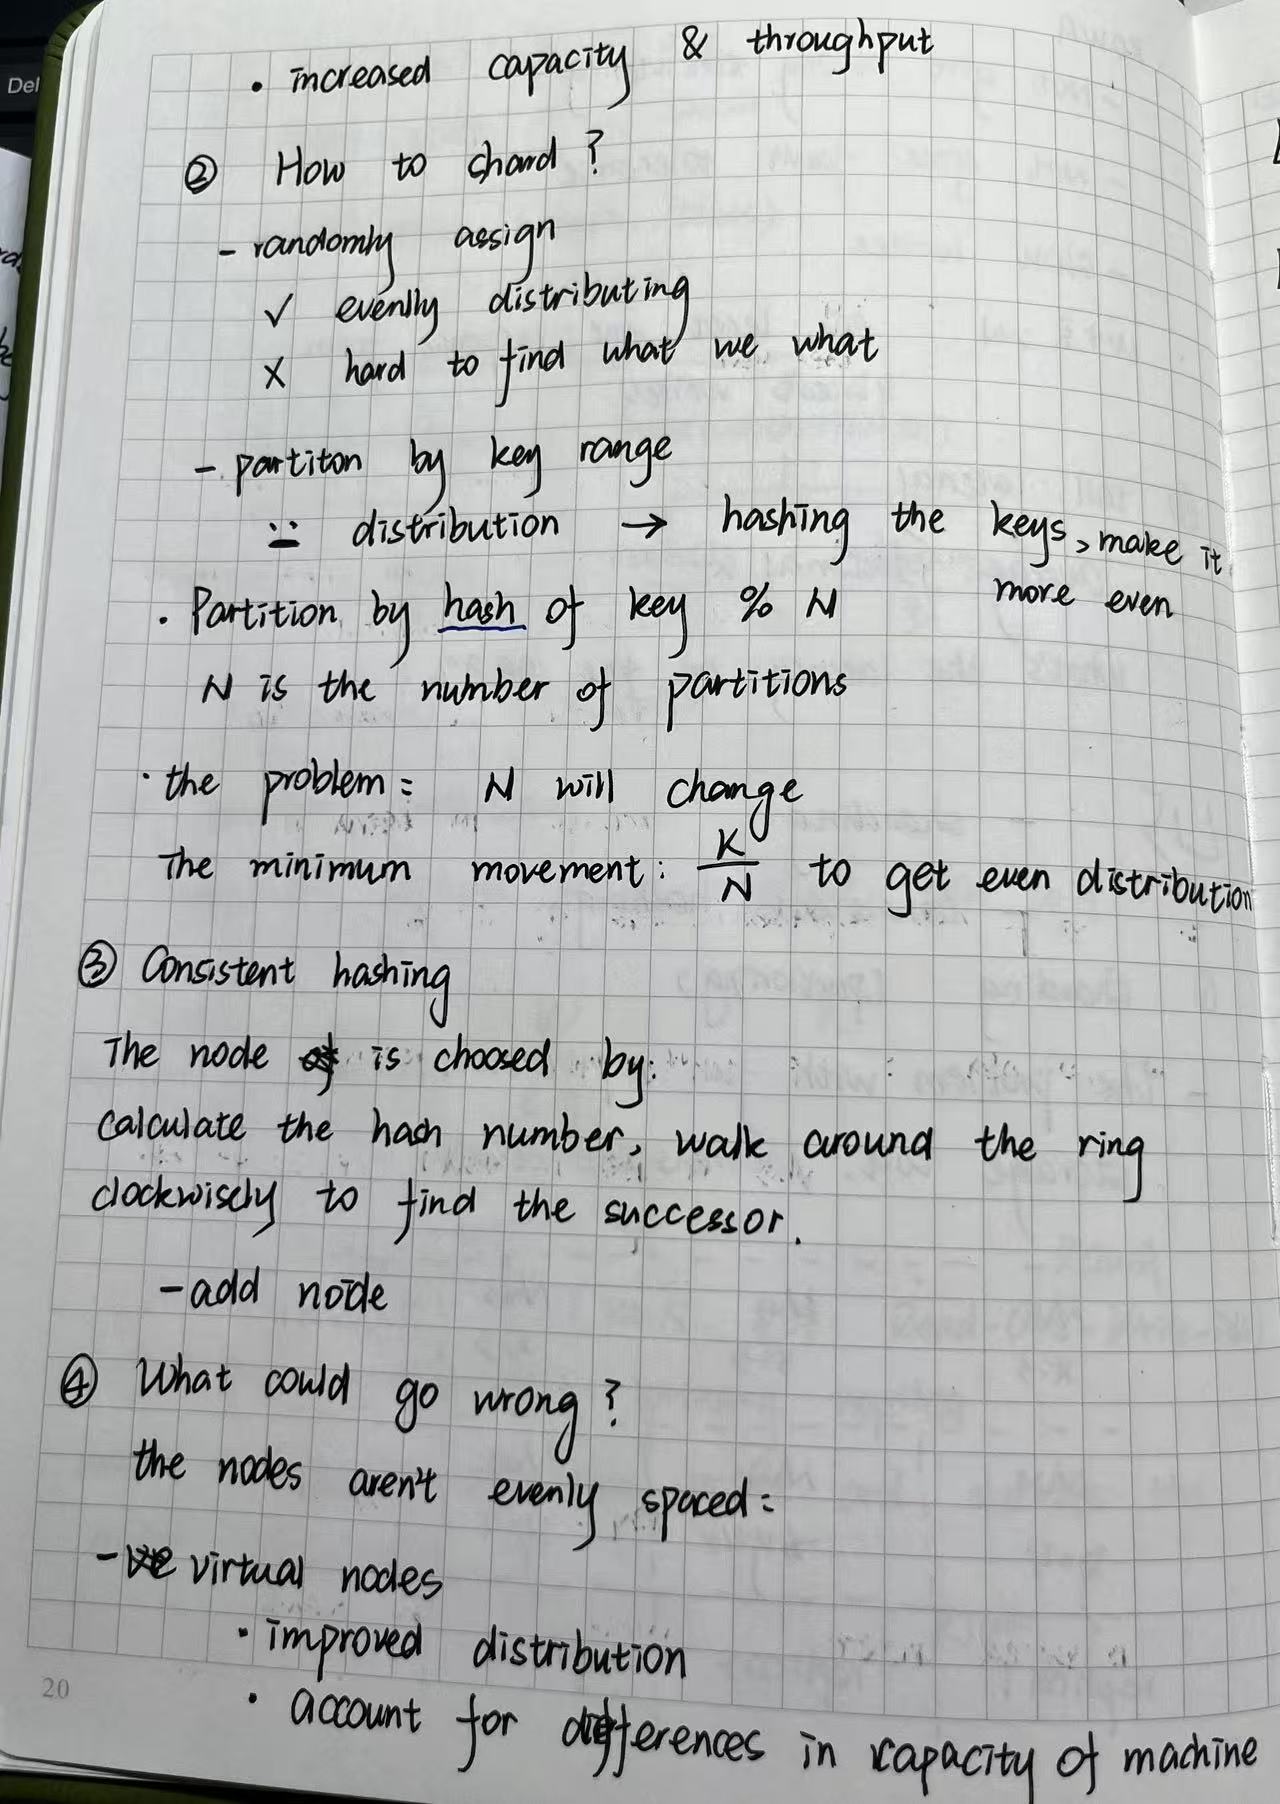 Del
• increased capacity & throughput
② How to shard?
- randomly assign
✓ evenlly distributing
x hard to find what we what
- partiton by key range
distribution → hashing the keys, make it
more even
• Partition by hash of key % N
N is the number of partitions
• the problem: N will change
The minimum movement: K/N to get even distribution
③ Consistent hashing
The node is choosed by:
calculate the hash number, walk around the ring
clockwisely to find the successor.
- add node
④ What could go wrong?
the nodes aren't evenly spaced:
- virtual nodes
• improved distribution
• account for differences in capacity of machine
20